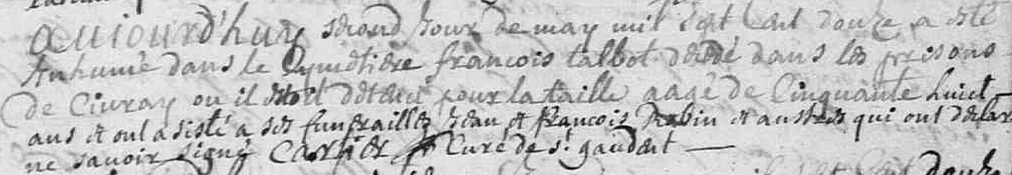 aujourd'huy second Jour de may mil sept cent douze a esté
Anhumé dans le Cymetière françois talbot décédé dans les prisons
de Civray ou il étoit détenu pour la taille aagé de Cinquante huict
ans et ont asisté a ses funerailles Jean et françois Rabin et austres qui ont déclaré
ne savoir signé Curé de st. gaudent
douze